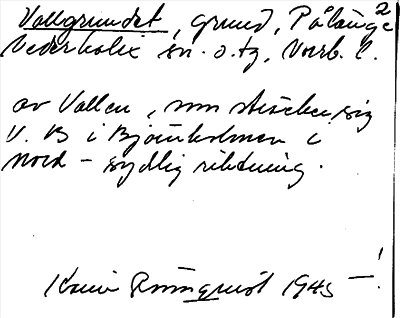 Vallgrundet, grund, Pålänge 2
Nederkalix sn. o. tg, Norrb. l.
av Vallen, som sträcker sig
V. B i Björnholmen i
nord - sydlig riktning.
Karin Rönnquist 1945